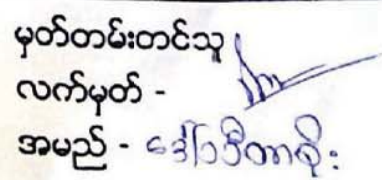 မှတ်တမ်းတင်သူ
လက်မှတ် -
အမည် - ဒေါ်သီတာစိုး